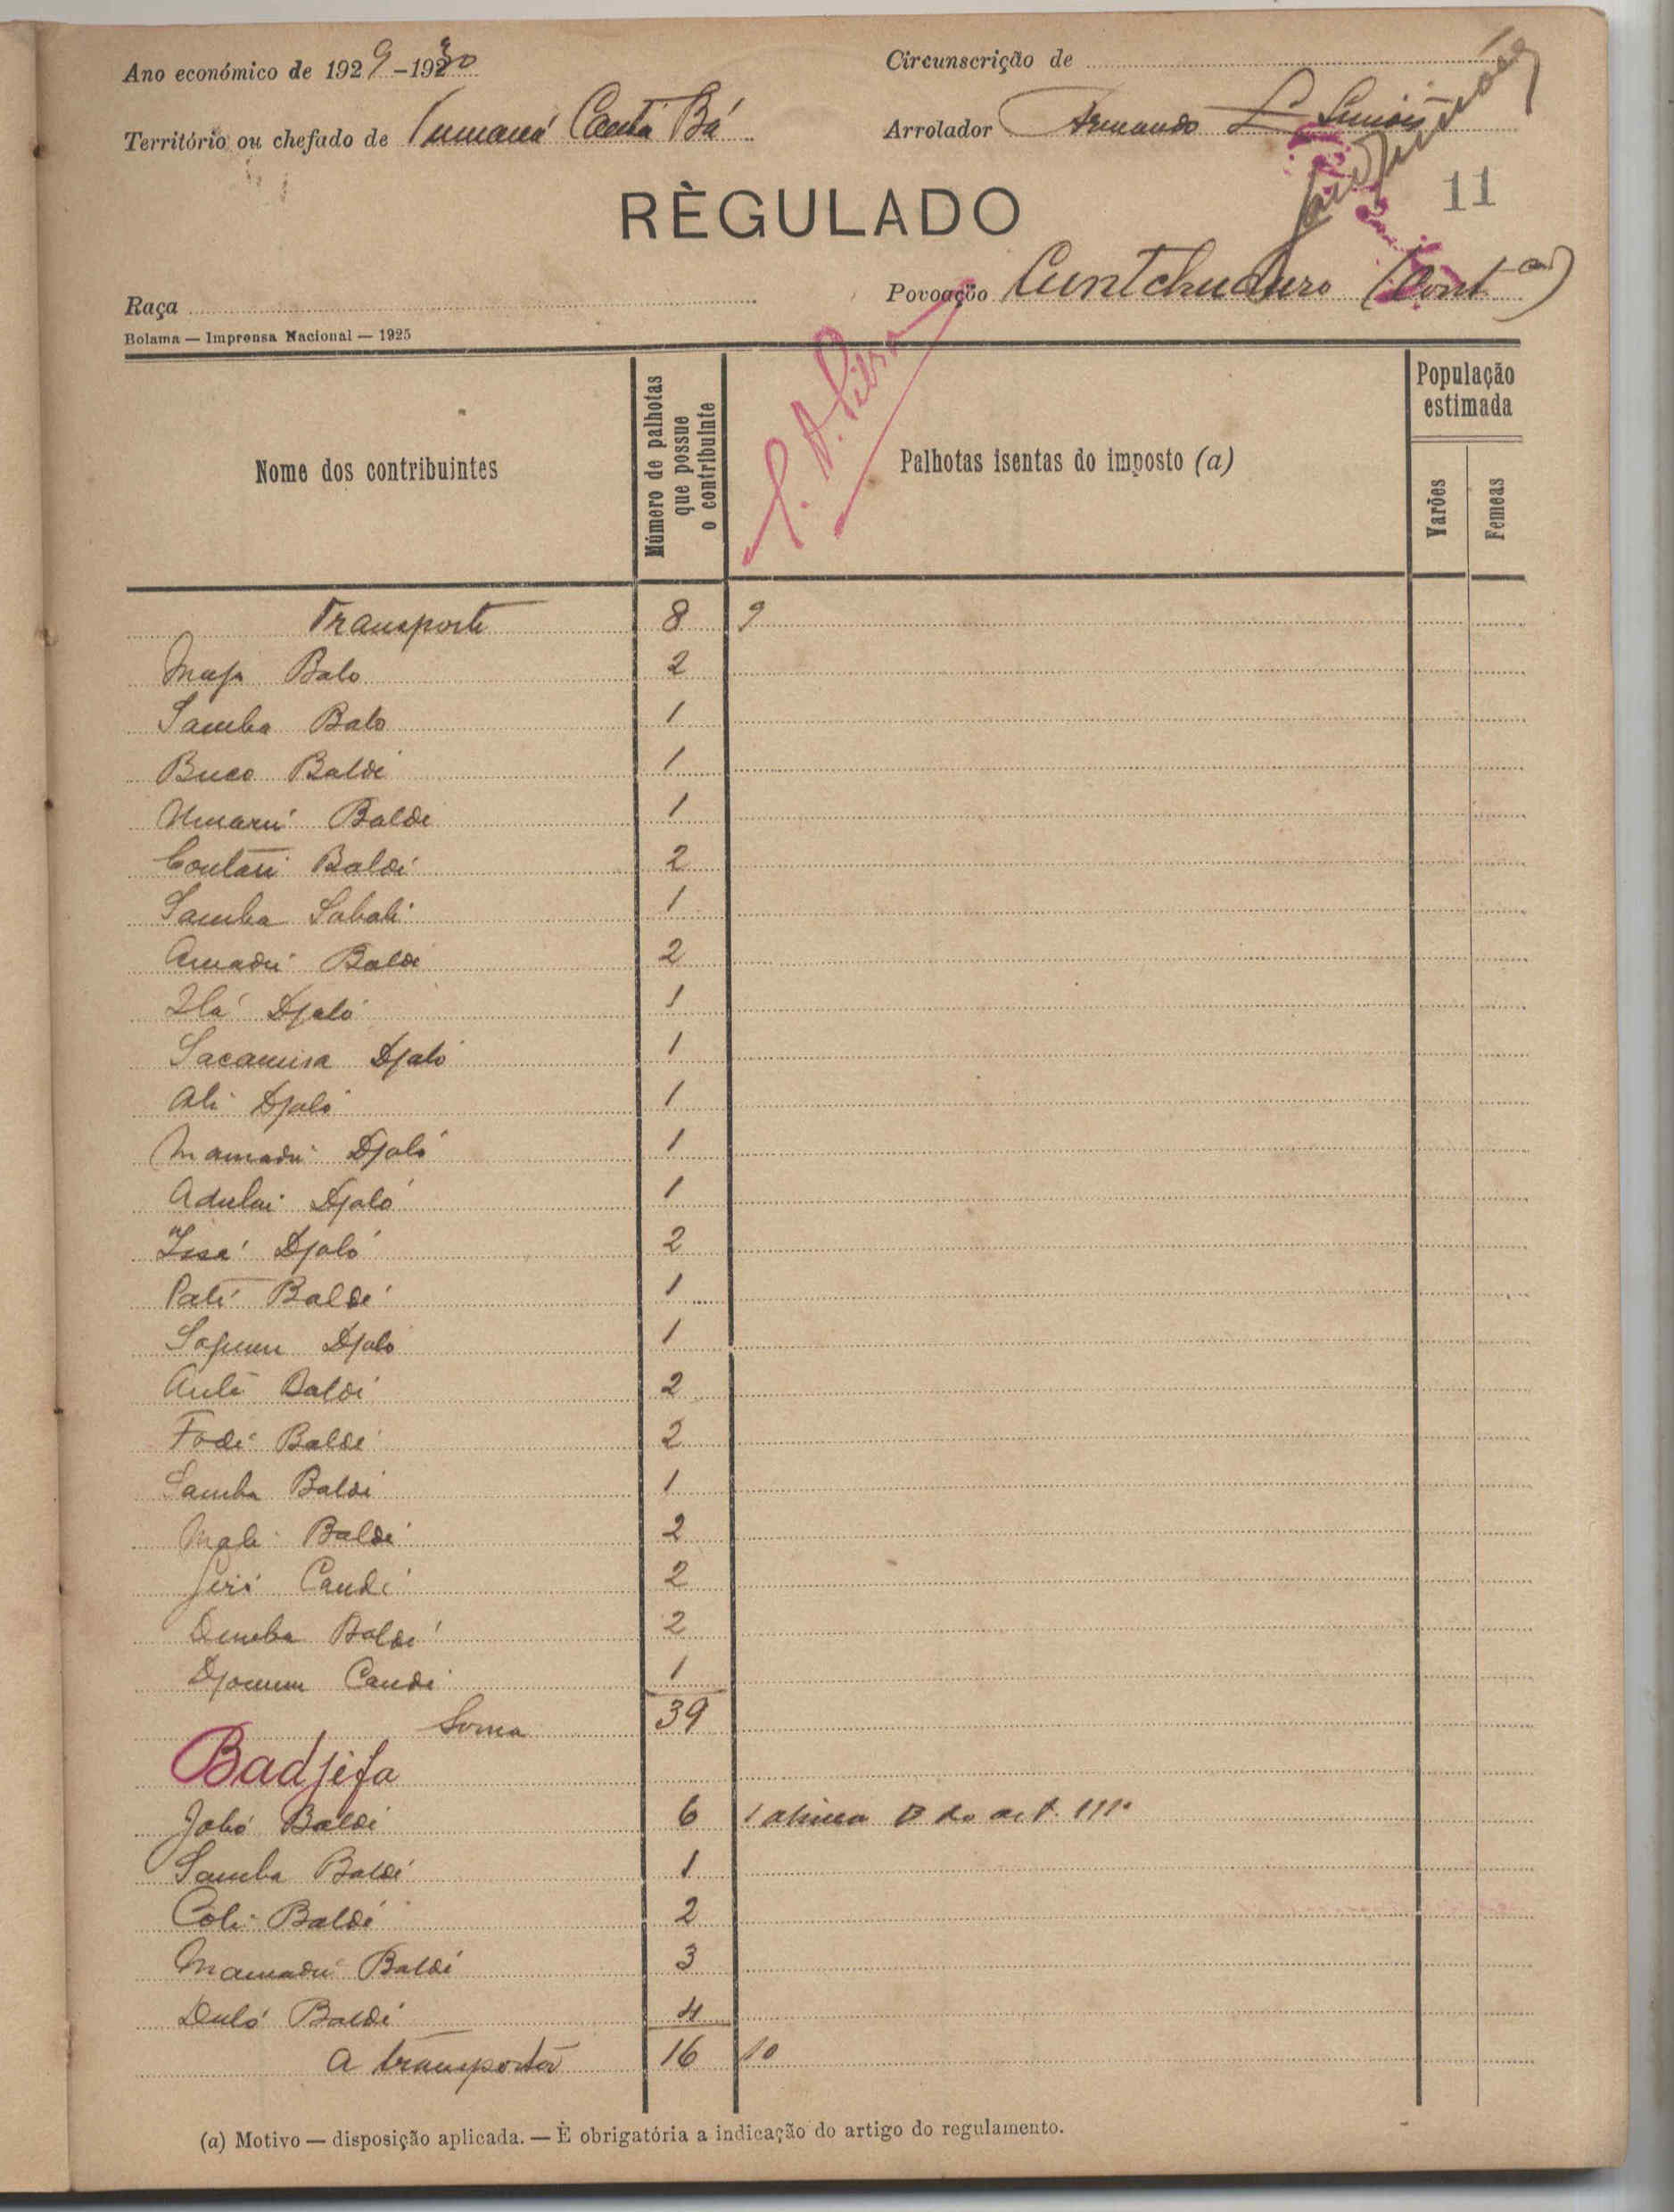 Ano económico de 1929-1930
Circunscrição de
Território ou chefado de Tumaná Cantá Bá
Arrolador Armando L. Simões
11
RÈGULADO
Raça
Povoação Cuntchuduro (Cont.ão)
Bolama — Imprensa Nacional — 1925
Nome dos contribuintes
Número de palhotas que possue o contribuinte
Palhotas isentas do imposto (a)
População estimada
Varões
Femeas
S. A. Silva
Transporte 8 9
Balo 2
Samba Balo 1
Buco Baldé 1
Umarú Baldé 1
Baldé 2
Samba Sabali 1
Amadú Baldé 2
Ilá Djaló 1
Djaló 1
Ali Djaló 1
Mamadú Djaló 1
Adulai Djaló 1
Issá Djaló 2
Paté Baldé 1
Djaló 1
Baldé 2
Fodé Baldé 2
Samba Baldé 1
Mali Baldé 2
Candé 2
Demba Baldé 2
Candé 1
Soma 39
Badjifa
Jobó Baldé 6 1 alinea B do art. 111º
Samba Baldé 1
Coli Baldé 2
Mamadú Baldé 3
Duló Baldé 4
A transportar 16 10
(a) Motivo — disposição aplicada. — È obrigatória a indicação do artigo do regulamento.